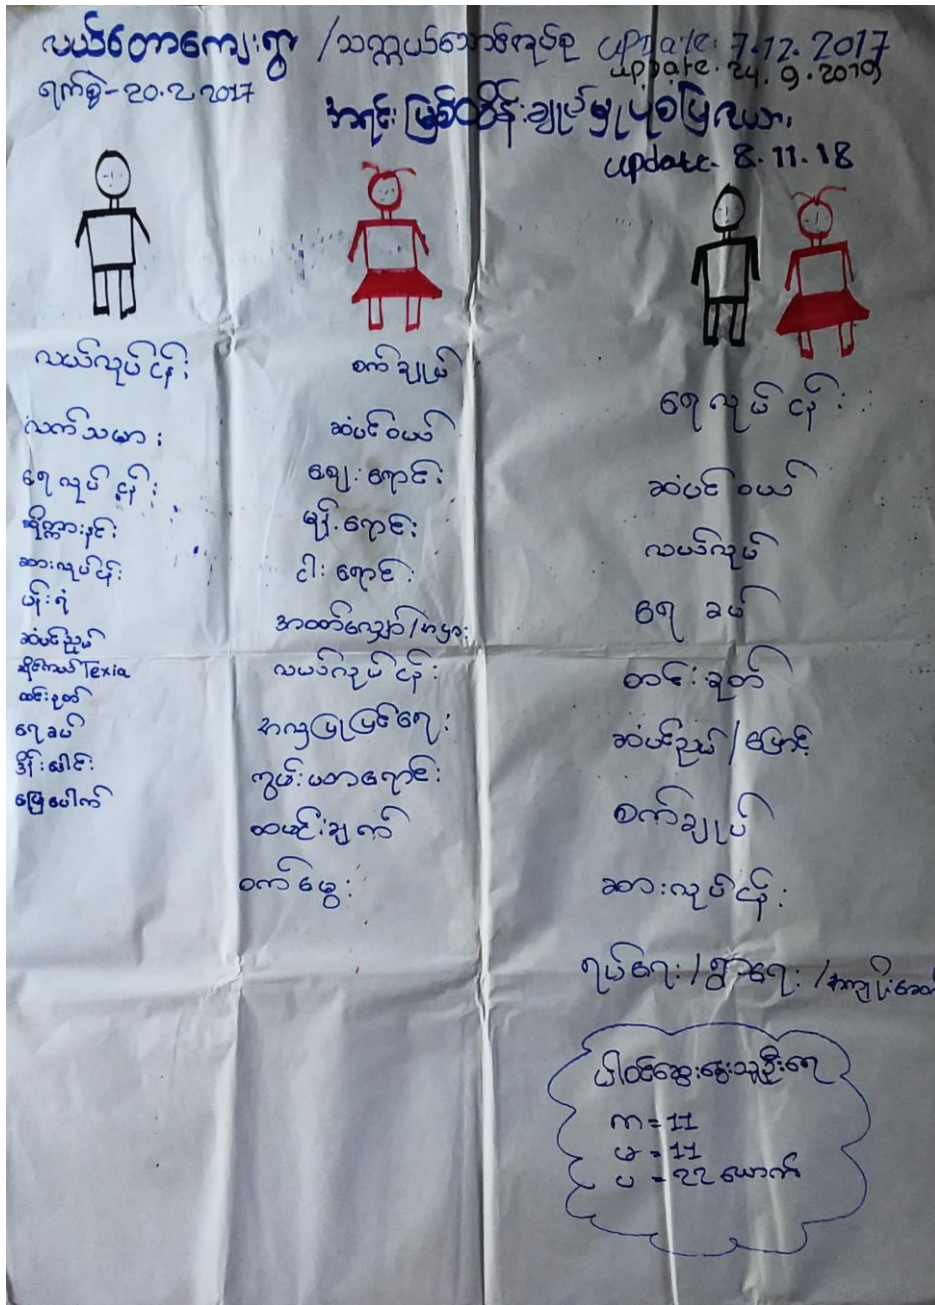 လယ်တောကျေးရွာ /သက္ကယ်သောင်အုပ်စု update: 7.12.2017
update. 24.9.2019
ရက်စွဲ-20.2.2017
အရင်းမြစ်ထိန်းချုပ်မှုပုံစံပြဇယား
update. 8.11.18
လယ်လုပ်ငန်း
လက်သမား
ရေလုပ်ငန်း
ဆိုက္ကားနင်း
ဆားလုပ်ငန်း
ပန်းရံ
ဆံပင်ညှပ်
ဆိုင်ကယ် Texia
ထင်းခုတ်
ရေခပ်
ဒိုန်းပေါင်း
မြေပေါက်
စက်ချုပ်
ဆံပင်ဝယ်
ဈေးရောင်း
မုန့်ရောင်း
ငါးရောင်း
အဝတ်လျှော်/အငှား
လယ်လုပ်ငန်း
အလှပြုပြင်ရေး
ကွမ်းယာရောင်း
ထမင်းချက်
ဝက်မွေး
ရေလုပ်ငန်း
ဆံပင်ဝယ်
လယ်လုပ်
ရေခပ်
ထင်းခုတ်
ဆံပင်ညှပ်/ဖြောင့်
စက်ချုပ်
ဆားလုပ်ငန်း
ရပ်ရေး/ရွာရေး
ပါဝင်ဆွေးနွေးသူဦးရေ
က = 11
မ = 11
ပ = ၃၃ ယောက်